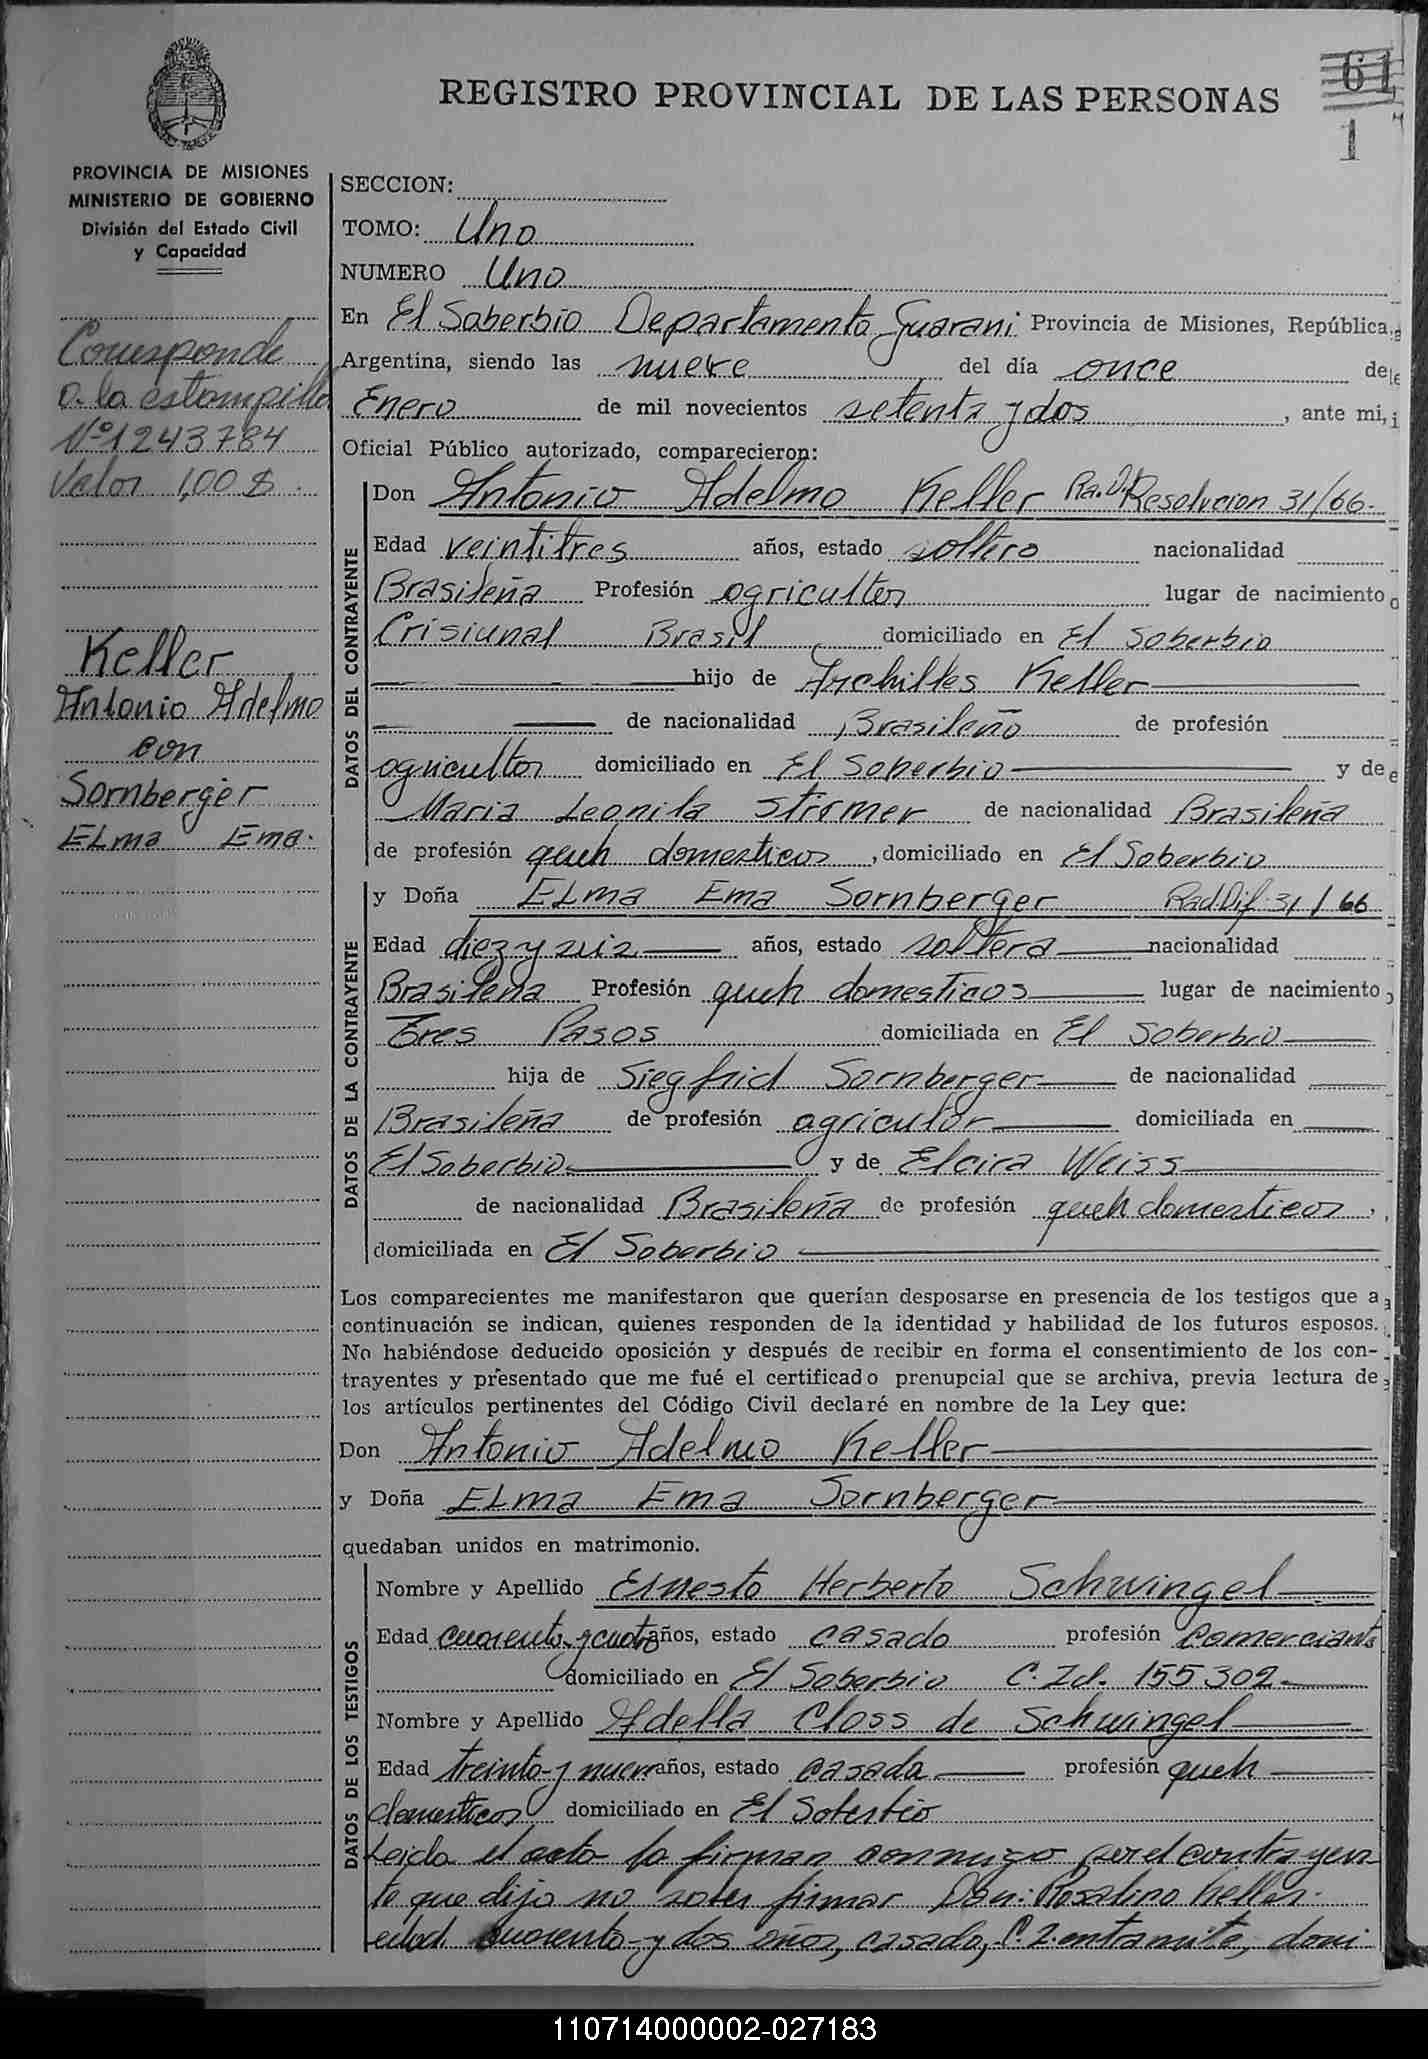 REGISTRO PROVINCIAL DE LAS PERSONAS
61
1
PROVINCIA DE MISIONES
MINISTERIO DE GOBIERNO
División del Estado Civil
y Capacidad
Corresponde
a la estampilla
Nº 1243784
Valor 1,00 $
Keller
Antonio Adelmo
con
Sornberger
Elma Ema.
SECCION:
TOMO: Uno
NUMERO Uno
En El Soberbio Departamento Guarani Provincia de Misiones, República
Argentina, siendo las nueve del día once de
Enero de mil novecientos setenta y dos, ante mi,
Oficial Público autorizado, comparecieron:
DATOS DEL CONTRAYENTE
Don Antonio Adelmo Keller Resolucion 31/66-
Edad veintitres años, estado soltero nacionalidad
Brasileña Profesión agricultor lugar de nacimiento
Crisiunal Brasil domiciliado en El Soberbio
hijo de Archilles Keller
de nacionalidad Brasileño de profesión
agricultor domiciliado en El Soberbio y de
Maria Leonila Stirmer de nacionalidad Brasileña
de profesión queh domesticos, domiciliado en El Soberbio
DATOS DE LA CONTRAYENTE
y Doña Elma Ema Sornberger Rad.Dif. 31/66
Edad diez y seis años, estado soltera nacionalidad
Brasileña Profesión queh domesticos lugar de nacimiento
Tres Pasos domiciliada en El Soberbio
hija de Siegfrid Sornberger de nacionalidad
Brasileña de profesión agricultor domiciliada en
El Soberbio y de Elcira Weiss
de nacionalidad Brasileña de profesión queh domesticos,
domiciliada en El Soberbio
Los comparecientes me manifestaron que querían desposarse en presencia de los testigos que a
continuación se indican, quienes responden de la identidad y habilidad de los futuros esposos.
No habiéndose deducido oposición y después de recibir en forma el consentimiento de los con-
trayentes y presentado que me fué el certificado prenupcial que se archiva, previa lectura de
los artículos pertinentes del Código Civil declaré en nombre de la Ley que:
Don Antonio Adelmo Keller
y Doña Elma Ema Sornberger
quedaban unidos en matrimonio.
DATOS DE LOS TESTIGOS
Nombre y Apellido Ernesto Herberto Schwingel
Edad cuarenta y cuatro años, estado casado profesión Comerciante
domiciliado en El Soberbio C. Id. 155302-
Nombre y Apellido Adella Closs de Schwingel
Edad treinta y nueve años, estado casada profesión queh
domesticos domiciliado en El Soberbio
Leida el acta la firman conmigo por el contrayen
te que dijo no saber firmar Don: Rosalino Keller.
edad cuarenta y dos años, casado, C. I. en tramite, domi
110714000002-027183